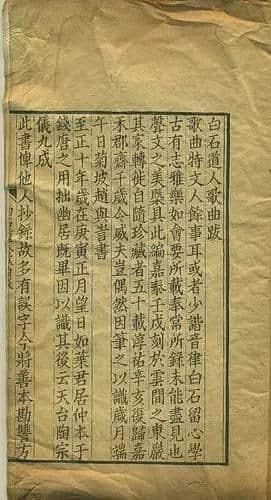 白石道人歌曲跋
歌曲特文人餘事耳或者少諧音律白石留心學
古有志雅樂如會要所載奉常所錄未能盡見也
聲文之美槩具此編嘉泰壬戌刻於雲間之東巖
其家轉徙自隨珍藏者五十載淳祐辛亥復歸嘉
禾郡齋千歲令威夫豈偶然因筆之以識歲月端
午日菊坡趙與訔書
至正十年歲在庚寅正月望日如葉君居仲本于
錢唐之用拙幽居既畢因以識其後云天台陶宗
儀九成
此書俾他人抄錄故多有誤字今將善本勘讐方